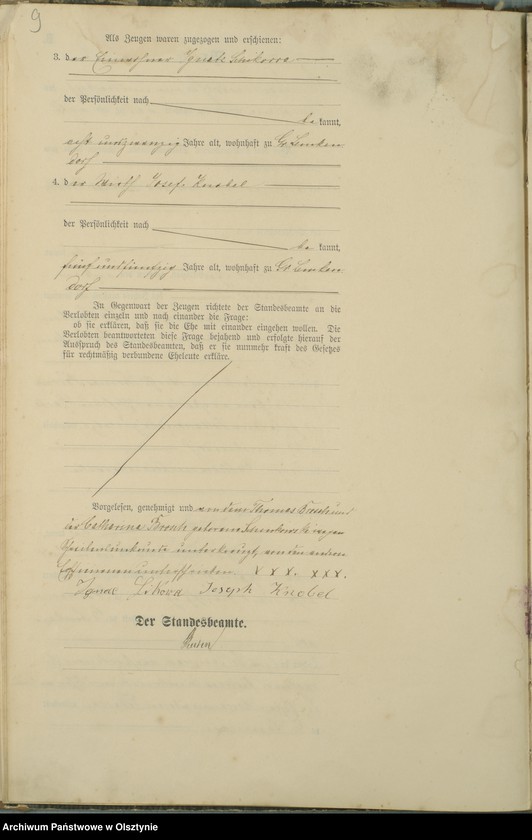 9
Als Zeugen waren zugezogen und erschienen:
3. der Einwohner Ignatz
der Persönlichkeit nach
be kannt,
acht und zwanzig Jahre alt, wohnhaft zu Gr. Lemken
dorf
4. der Wirth Josef Knobel
der Persönlichkeit nach
be kannt,
fünf und fünfzig Jahre alt, wohnhaft zu Gr. Lemken
dorf
In Gegenwart der Zeugen richtete der Standesbeamte an die
Verlobten einzeln und nach einander die Frage:
ob sie erklären, daß sie die Ehe mit einander eingehen wollen. Die
Verlobten beantworteten diese Frage bejahend und erfolgte hierauf der
Ausspruch des Standesbeamten, daß er sie nunmehr kraft des Gesetzes
für rechtmäßig verbundene Eheleute erkläre.
Vorgelesen, genehmigt und von dem Thomas und
der Catharina geborene wegen
Schreibensunkunde unterkreuzt, von den andern
unterschrieben. X X X. X X X.
Ignac Joseph Knobel
Der Standesbeamte.
Archiwum Państwowe w Olsztynie